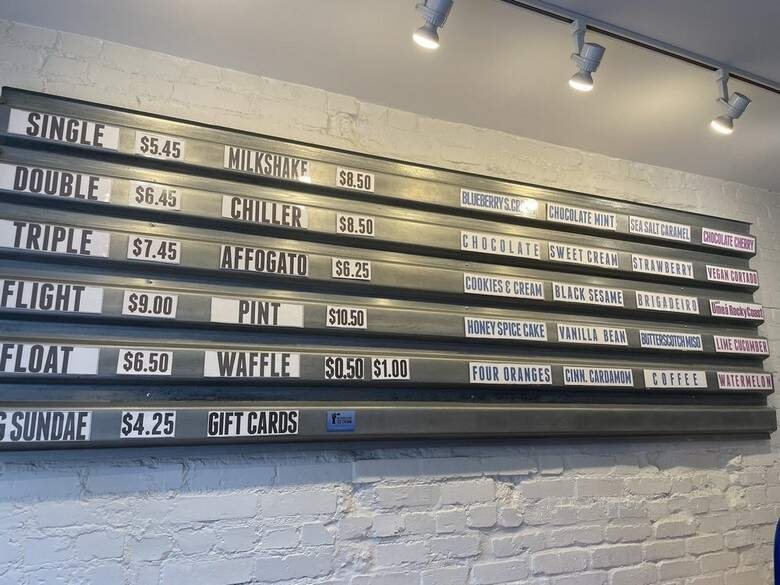 SINGLE $5.45 MILKSHAKE $8.50 BLUEBERRY S. CHOCOLATE MINT SEA SALT CARAMEL CHOCOLATE CHERRY
DOUBLE $6.45 CHILLER $8.50 CHOCOLATE SWEET CREAM STRAWBERRY VEGAN CORTADO
TRIPLE $7.45 AFFOGATO $6.25 COOKIES & CREAM BLACK SESAME BRIGADEIRO Umeå Rocky Coast
FLIGHT $9.00 PINT $10.50 HONEY SPICE CAKE VANILLA BEAN BUTTERSCOTCH MISO LIME CUCUMBER
FLOAT $6.50 WAFFLE $0.50 $1.00 FOUR ORANGES CINN. CARDAMOM COFFEE WATERMELON
SUNDAE $4.25 GIFT CARDS